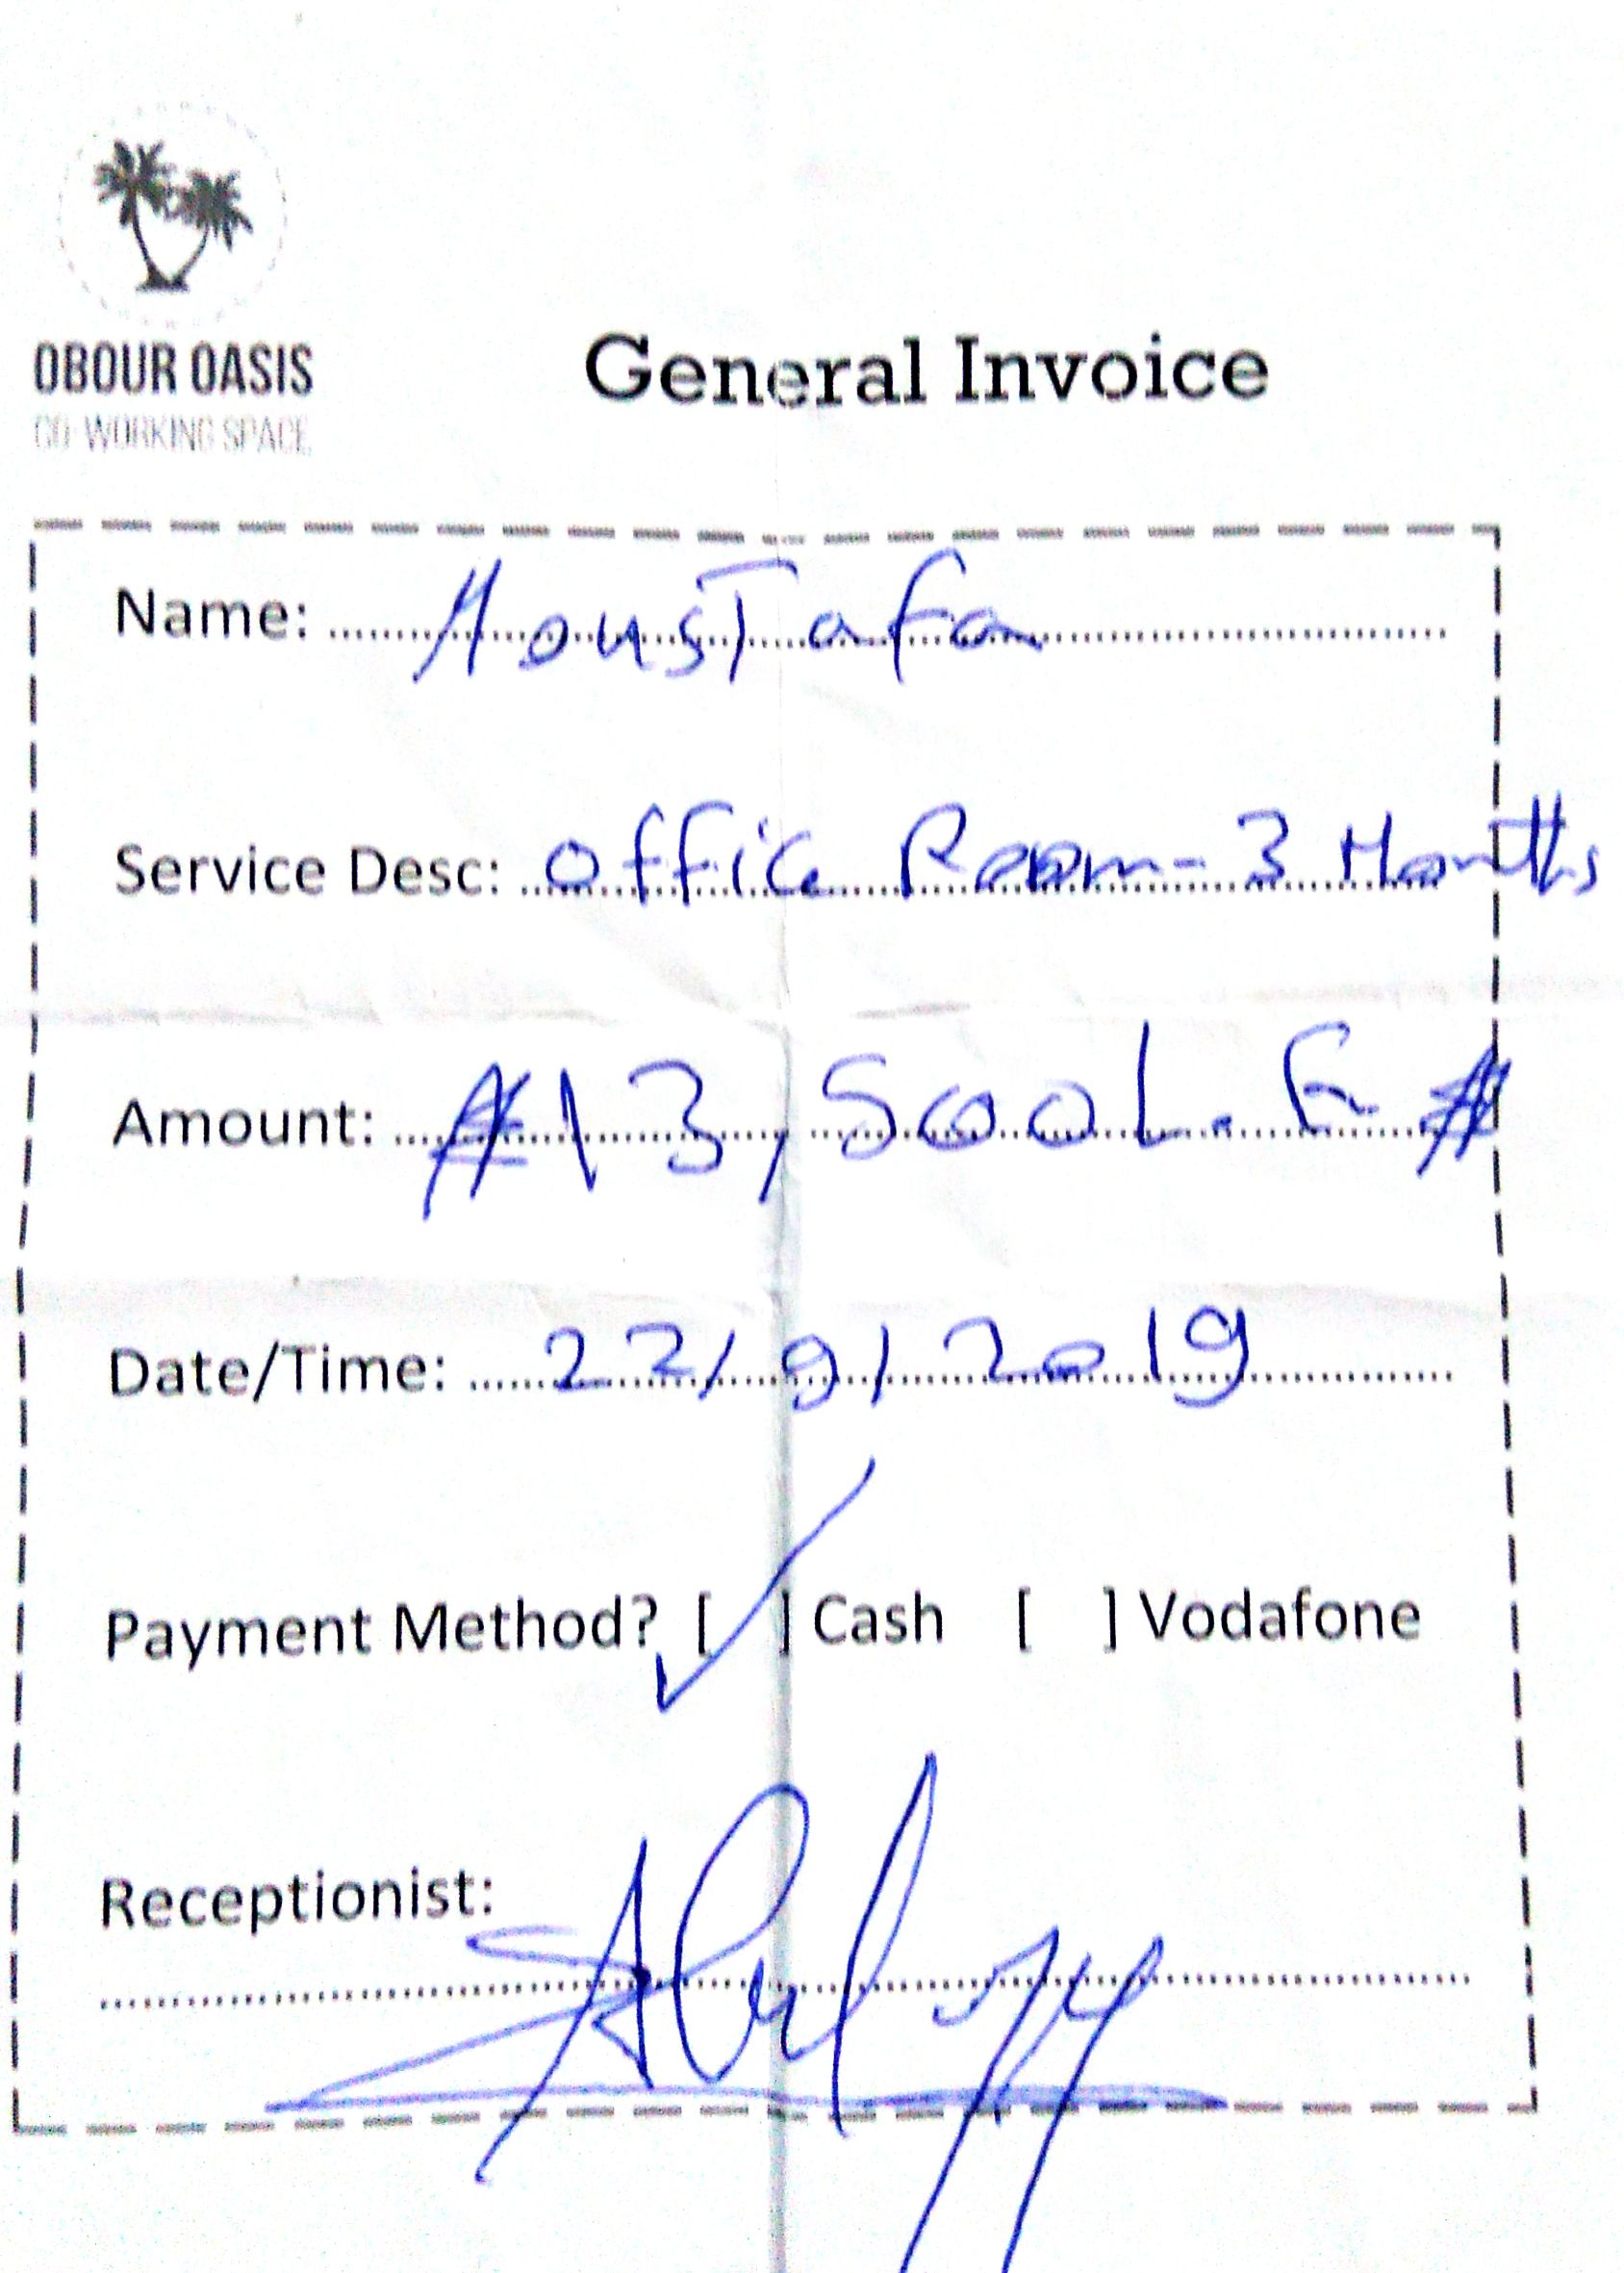 OBOUR OASIS
CO-WORKING SPACE
General Invoice
Name: Moustafa
Service Desc: Office Room - 3 Months
Amount: # 13,500 L.E #
Date/Time: 22/9/2019
Payment Method? [✓] Cash [ ] Vodafone
Receptionist: